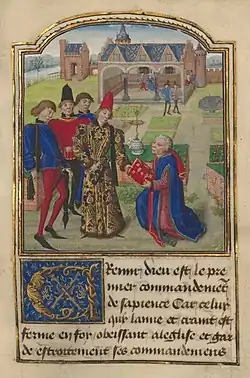 Cremir dieu est le pre
mier commandement
de sapience Car celuy
qui lanne et craint est
ferme en foy obeissant aleglise et gar
de estroitement ses commandemens